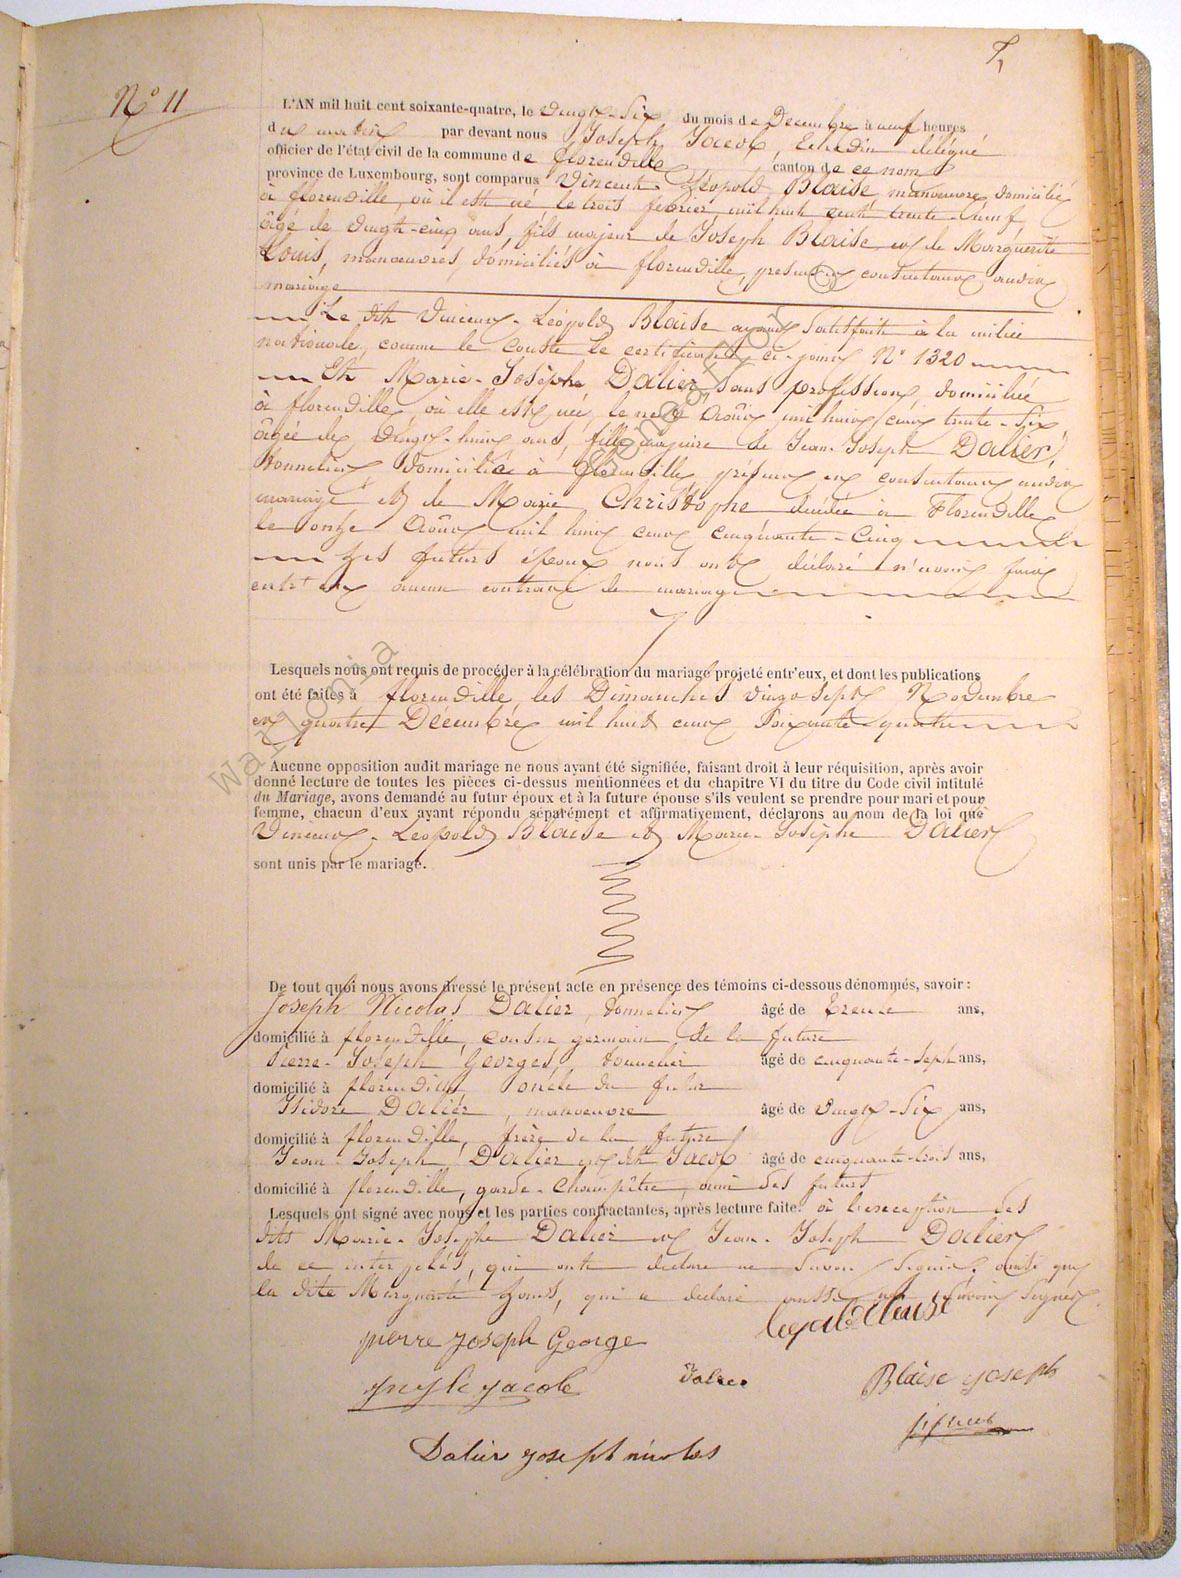 N° 11
L'AN mil huit cent soixante-quatre, le vingt-six du mois de Décembre à neuf heures
du matin par devant nous Joseph Jacob, Echevin délégué
officier de l'état civil de la commune de florenville canton de ce nom
province de Luxembourg, sont comparus Vincent Léopold Blaise, manoeuvre, domicilié
à florenville, où il est né le trois février mil huit cent trente-neuf
âgé de vingt-cinq ans, fils majeur de Joseph Blaise et de Marguerite
Louis, manoeuvres, domiciliés à florenville, présents et consentants audit
mariage
Le dit Vincent-Léopold Blaise ayant satisfait à la milice
nationale, comme le conste le certificat ci-joint N° 1320
Et Marie-Josèphe Dalier, sans profession, domiciliée
à florenville, où elle est née, le neuf Août mil huit cent trente-six
âgée de vingt-huit ans, fille majeure de Jean-Joseph Dalier,
tonnelier, domicilié à florenville, présent et consentant audit
mariage et de Marie Christophe décédée à Florenville
le onze Août mil huit cent cinquante-cinq
Les futurs époux nous ont déclaré n'avoir fait
entr'eux aucun contrat de mariage
Lesquels nous ont requis de procéder à la célébration du mariage projeté entr'eux, et dont les publications
ont été faites à florenville, les Dimanches vingt sept Novembre
et quatre Décembre mil huit cent soixante quatre
Aucune opposition audit mariage ne nous ayant été signifiée, faisant droit à leur réquisition, après avoir
donné lecture de toutes les pièces ci-dessus mentionnées et du chapitre VI du titre du Code civil intitulé
du Mariage, avons demandé au futur époux et à la future épouse s'ils veulent se prendre pour mari et pour
femme, chacun d'eux ayant répondu séparément et affirmativement, déclarons au nom de la loi que
Vincent-Léopold Blaise et Marie-Josèphe Dalier
sont unis par le mariage.
De tout quoi nous avons dressé le présent acte en présence des témoins ci-dessous dénommés, savoir :
Joseph Nicolas Dalier, tonnelier âgé de trente ans,
domicilié à florenville, cousin germain de la future
Pierre-Joseph Georges, tonnelier âgé de cinquante-sept ans,
domicilié à florenville oncle du futur
Isidore Dalier, manoeuvre âgé de vingt-six ans,
domicilié à florenville, frère de la future
Jean-Joseph Dalier et dit Jacob âgé de cinquante-trois ans,
domicilié à florenville, garde-champêtre, ami des futurs
Lesquels ont signé avec nous et les parties contractantes, après lecture faite. à l'exception des
dits Marie-Josèphe Dalier et Jean-Joseph Dalier
de ce interpelés, qui ont déclaré ne savoir signer, ainsi que
la dite Marguerite Louis, qui a déclaré aussi ne savoir signer
pierre joseph George
Blaise joseph
Dalier joseph nicolas
Wallonia Genealogy ©